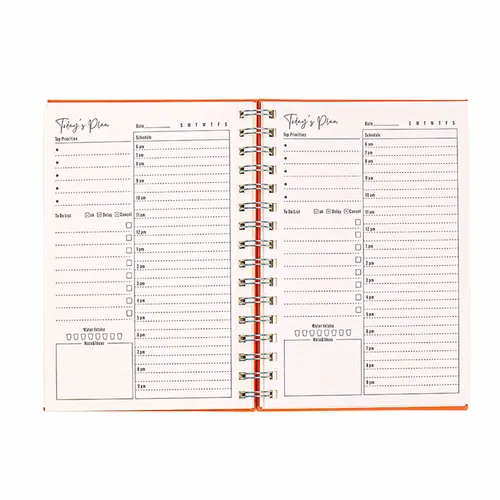 Today's Plan
Date S M T W T F S
Top Priorities
Schedule
6 am
7 am
8 am
9 am
10 am
To Do List ok Delay Cancel
11 am
12 pm
1 pm
2 pm
3 pm
4 pm
5 pm
Water Intake
Note&Ideas
6 pm
7 pm
8 pm
9 pm
Today's Plan
Date S M T W T F S
Top Priorities
Schedule
6 am
7 am
8 am
9 am
10 am
To Do List ok Delay Cancel
11 am
12 pm
1 pm
2 pm
3 pm
4 pm
5 pm
Water Intake
Note&Ideas
6 pm
7 pm
8 pm
9 pm